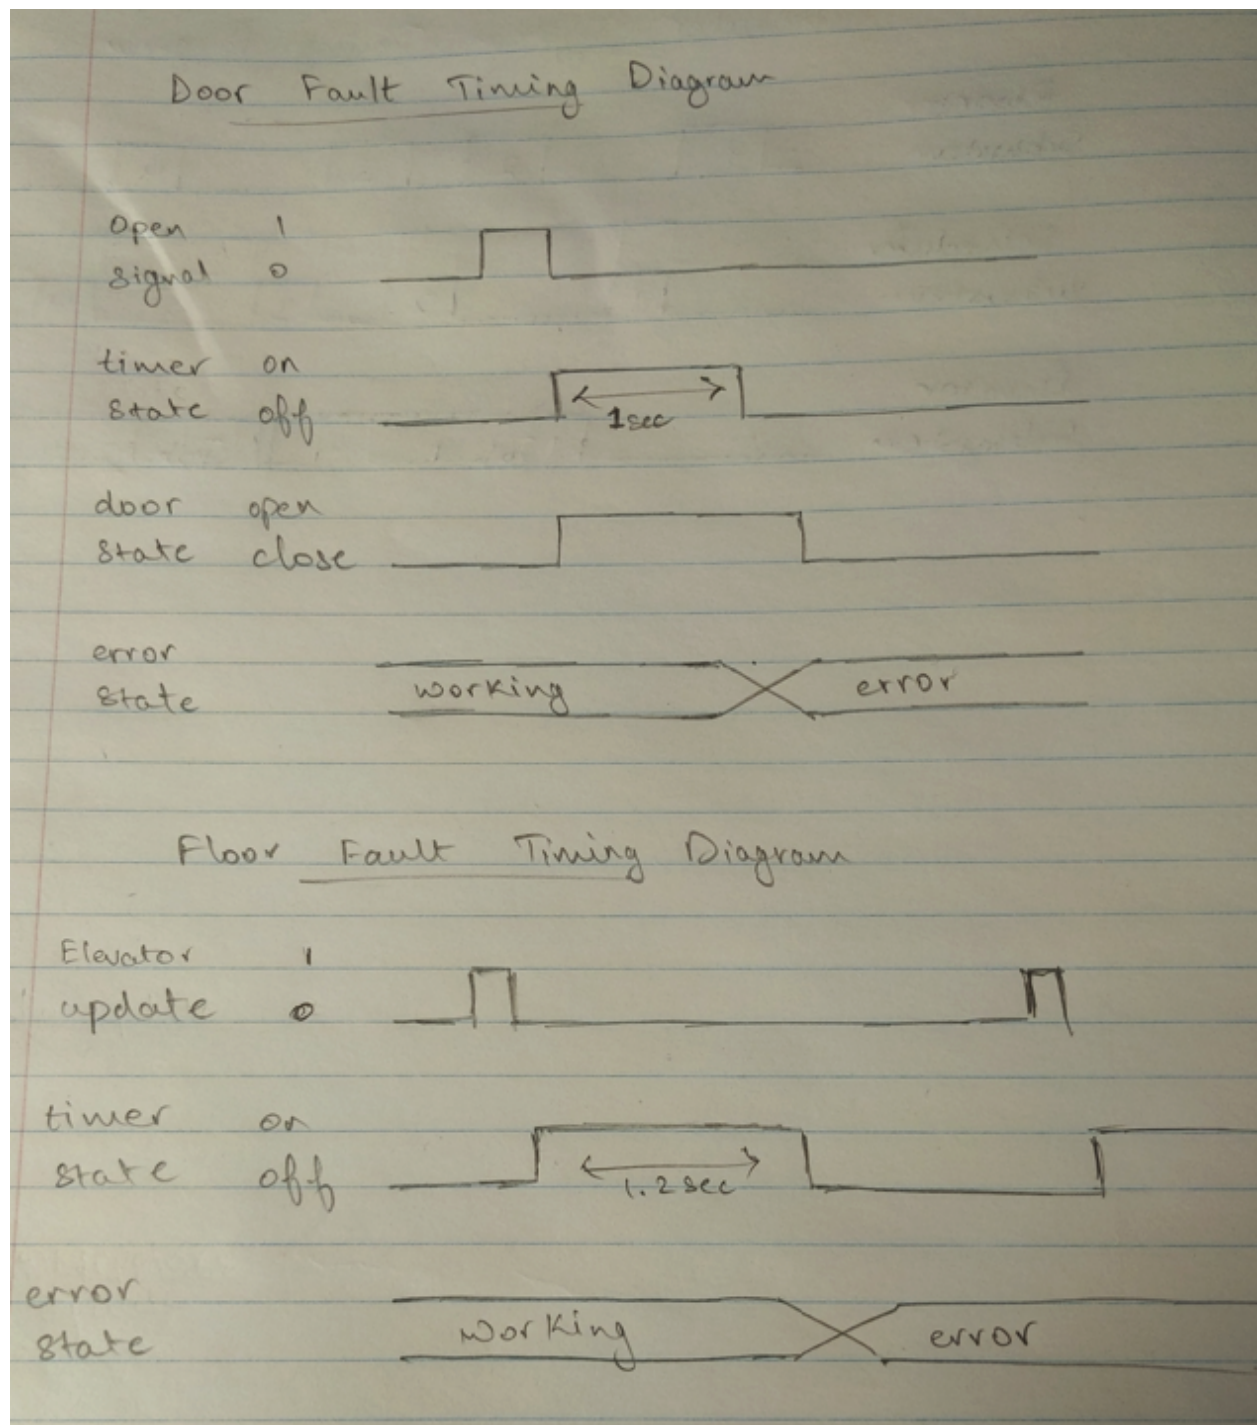 Door Fault Timing Diagram
Open 1
signal 0
timer on
state off
1sec
door open
state close
error
state
working
error
Floor Fault Timing Diagram
Elevator 1
update 0
timer on
state off
1.2 sec
error
state
working
error